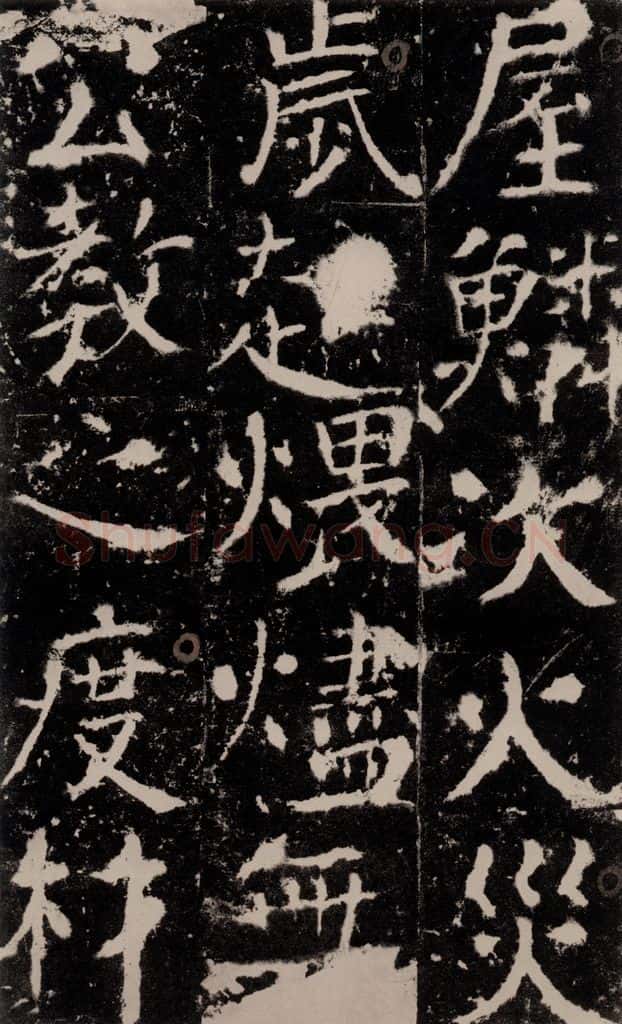 屋鱗次火災
歲起煨燼無
公教之度材
Shufawang.CN